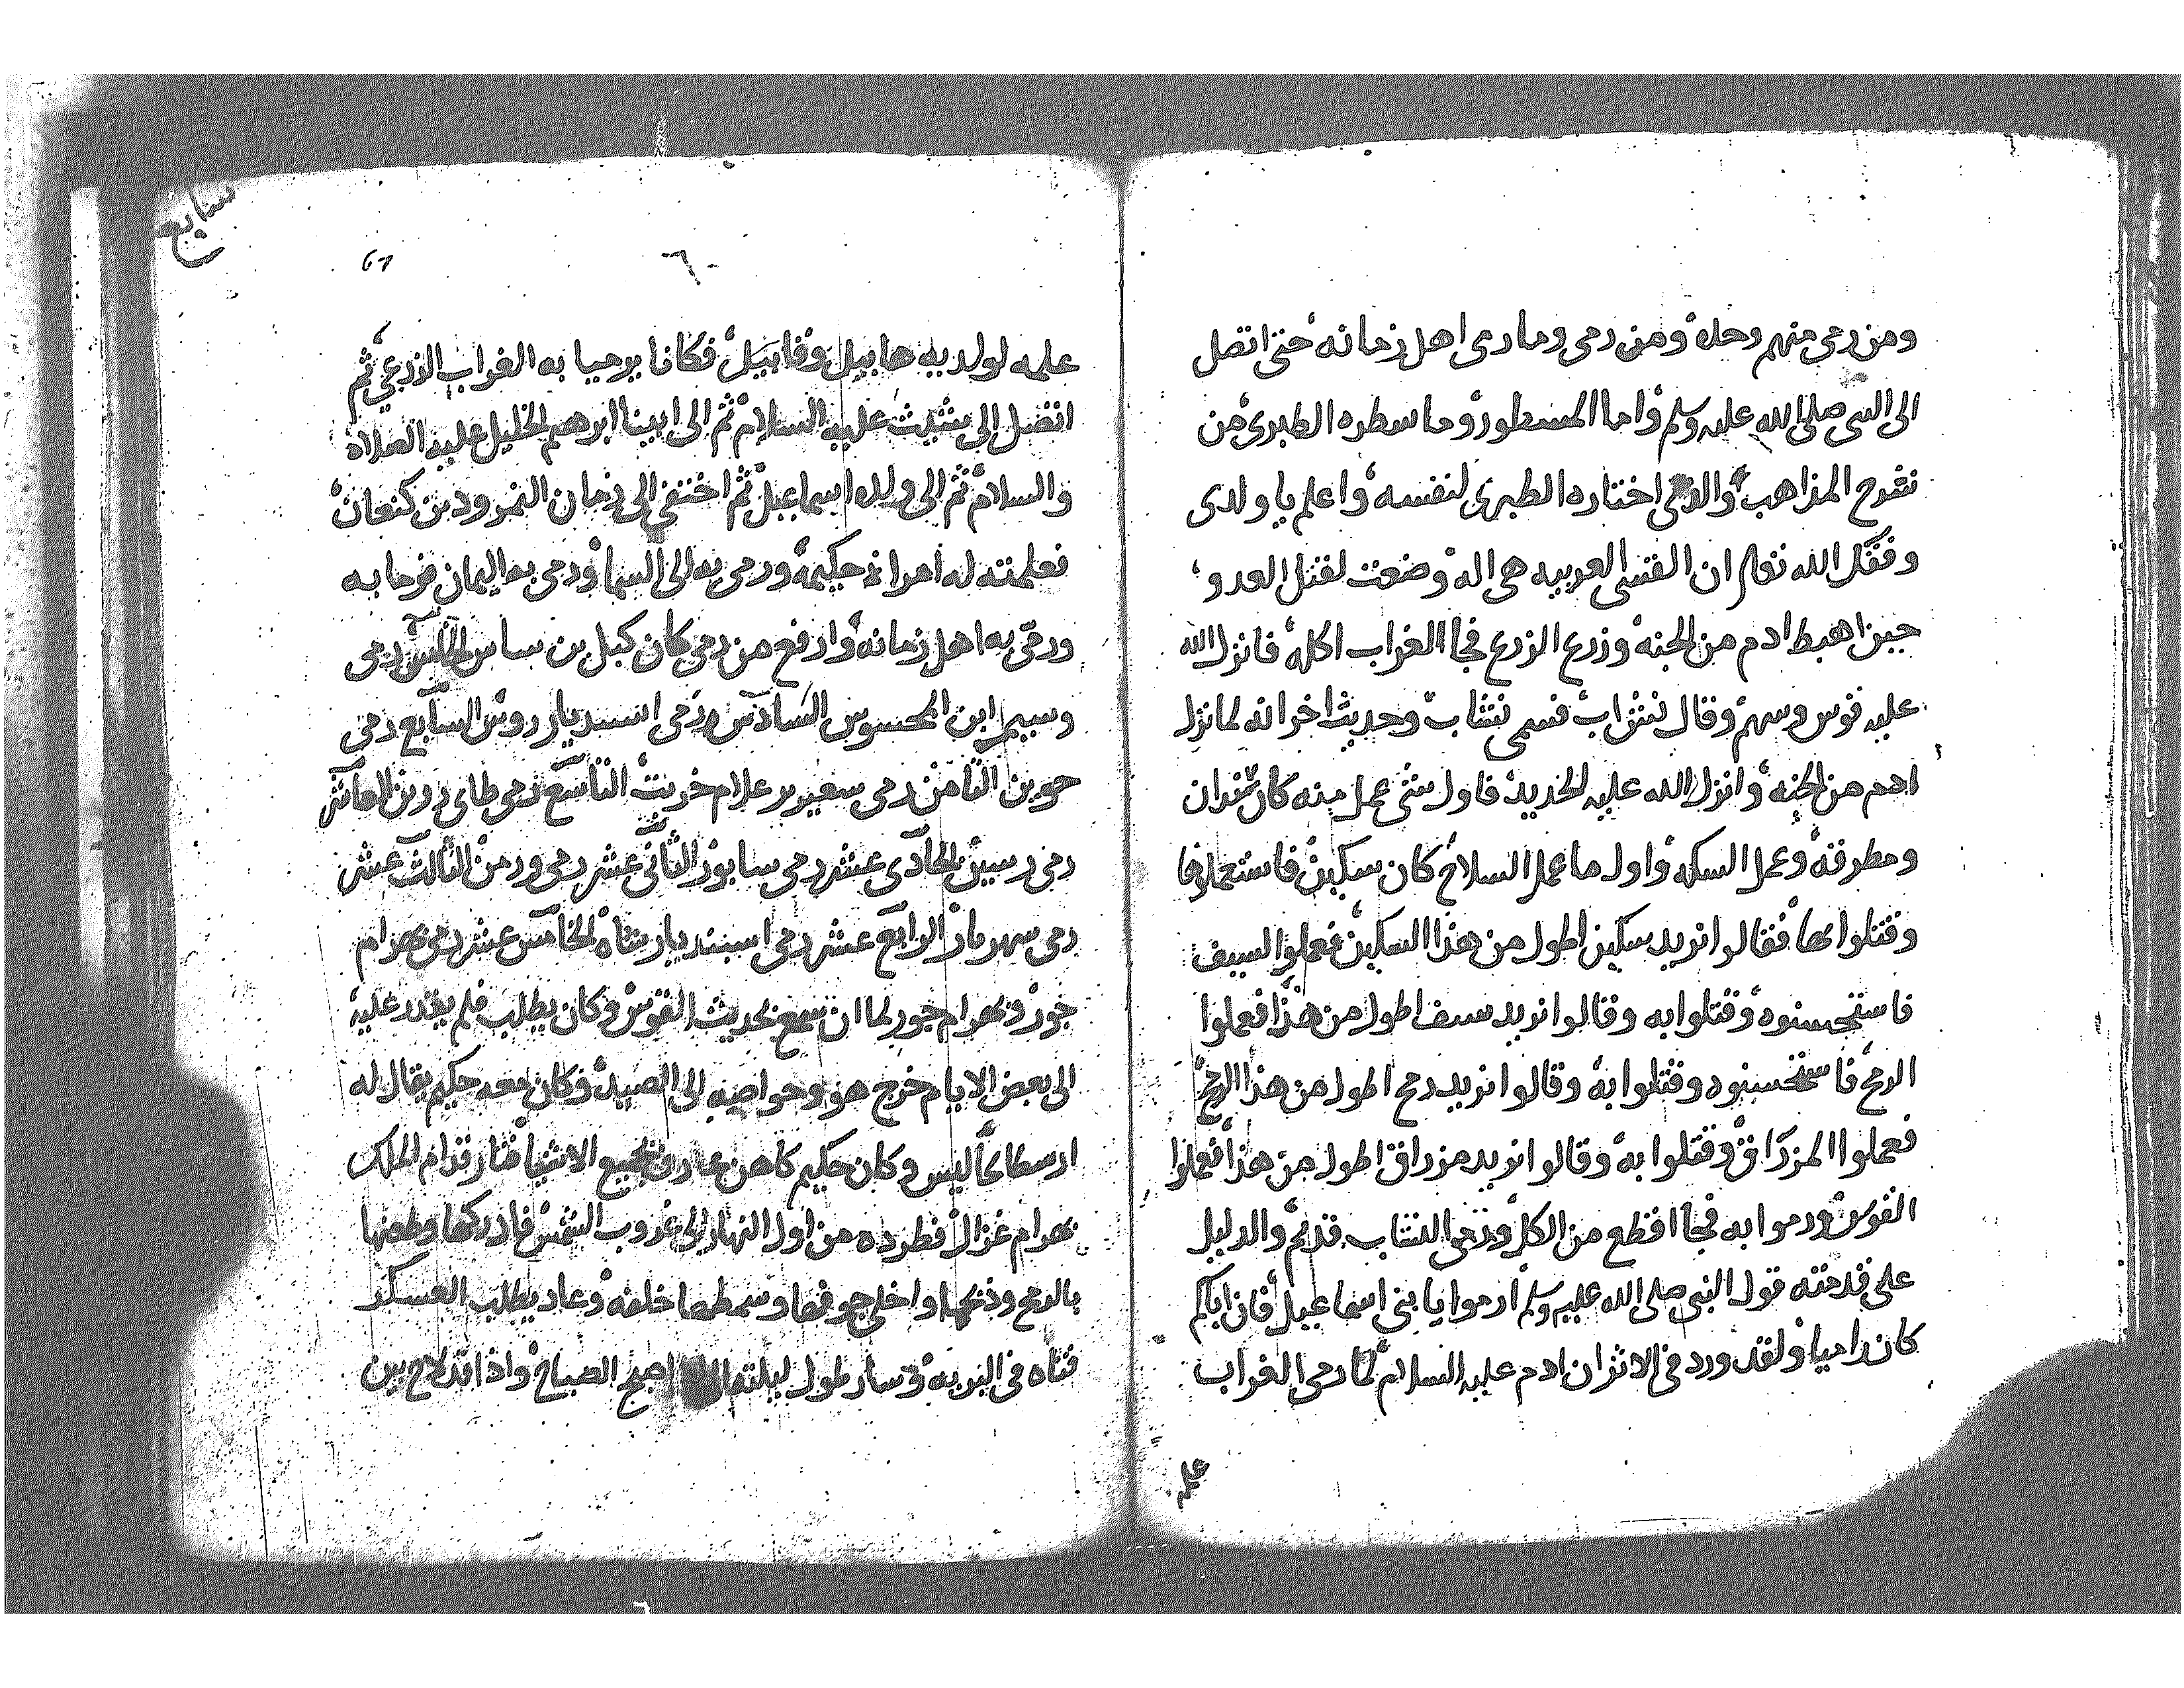 ومن رمى منهم وحده ومن رمى وما رمى اهل زمانه حتى اتصل
الى النبى صلى الله عليه وسلم واما المسطور وما سطره الطبرى من
شرح المذاهب والذى اختاره الطبرى لنفسه واعلم يا ولدى
وفقك الله تعالى ان القسى العربيه هى اله وضعت لقتل العدو
حين اهبط ادم من الجنه وزرع الزرع فجا الغراب اكله فانزل الله
عليه قوس وسهم وقال نشراب فسمى نشاب وحديث اخر انه لما نزل
ادم من الجنه وانزل الله عليه الحديد فاول شى عمل منه كان سندان
ومطرقه وعمل السكه واول ما عمل السلاح كان سكين فاستعملوها
وقتلوا بها فقالوا نريد سكين اطول من هذا السكين فعملوا السيف
فاستحسنوه وقتلوا به وقالوا نريد سيف اطول من هذا فعملوا
الرمح فاستحسنوه وقتلوا به وقالوا نريد رمح اطول من هذا الرمح
فعملوا المزراق وقتلوا به وقالوا نريد مزراق اطول من هذا فعملوا
القوس ورموا به فجا اقطع من الكل ورمى النشاب قديم والدليل
على قدمته قول النبى صلى الله عليه وسلم ارموا يا بنى اسماعيل فان اباكم
كان راميا ولقد ورد فى الاثر ان ادم عليه السلام لما رمى الغراب
علمه
٦٠
61
علمه لولديه هابيل وقابيل فكانا يرميا به الغراب الزرعى ثم
اتصل الى شيث عليه السلام ثم الى ابينا ابرهيم الخليل عليه الصلاه
والسلام ثم الى ولده اسماعيل ثم اختفى الى زمان النمرود بن كنعان
فعلمته له امراة حكيمه ورمى به الى السما ورمى به اليمان فرحا به
ورمى به اهل زمانه وارفع من رمى كان كيل بن ساس الخامس رمى
ابن المحسوس السادس ورمى اسنديار روش السابع رمى
جوين الثامن رمى علام خرنت التاسع رمى طاى روين العاشر
رمى رسين الحادى عشر رمى سابور الثانى عشر رمى وردمن الثالث عشر
رمى سهريار الرابع عشر رمى اسبنديار شاه الخامس عشر رمى بهرام
جور وبهرام جور لما ان سمع بحديث القوس وكان يطلب فلم يقدر عليه
الى بعض الايام خرج هو وخواصه الى الصيد وكان معه حكيم يقال له
ارسطاطاليس وكان حكيم كاهن عارف بجميع الاشيا فثار قدام الملك
بهرام غزال فطرده من اول النهار الى غروب الشمس فادركها وطعنها
بالرمح وذبحها واخلى جوفها وسمطها خلفه وعاد يطلب العسكر
فتاه فى البريه وسار طول ليلته اصبح الصباح واذا قد لاح بين